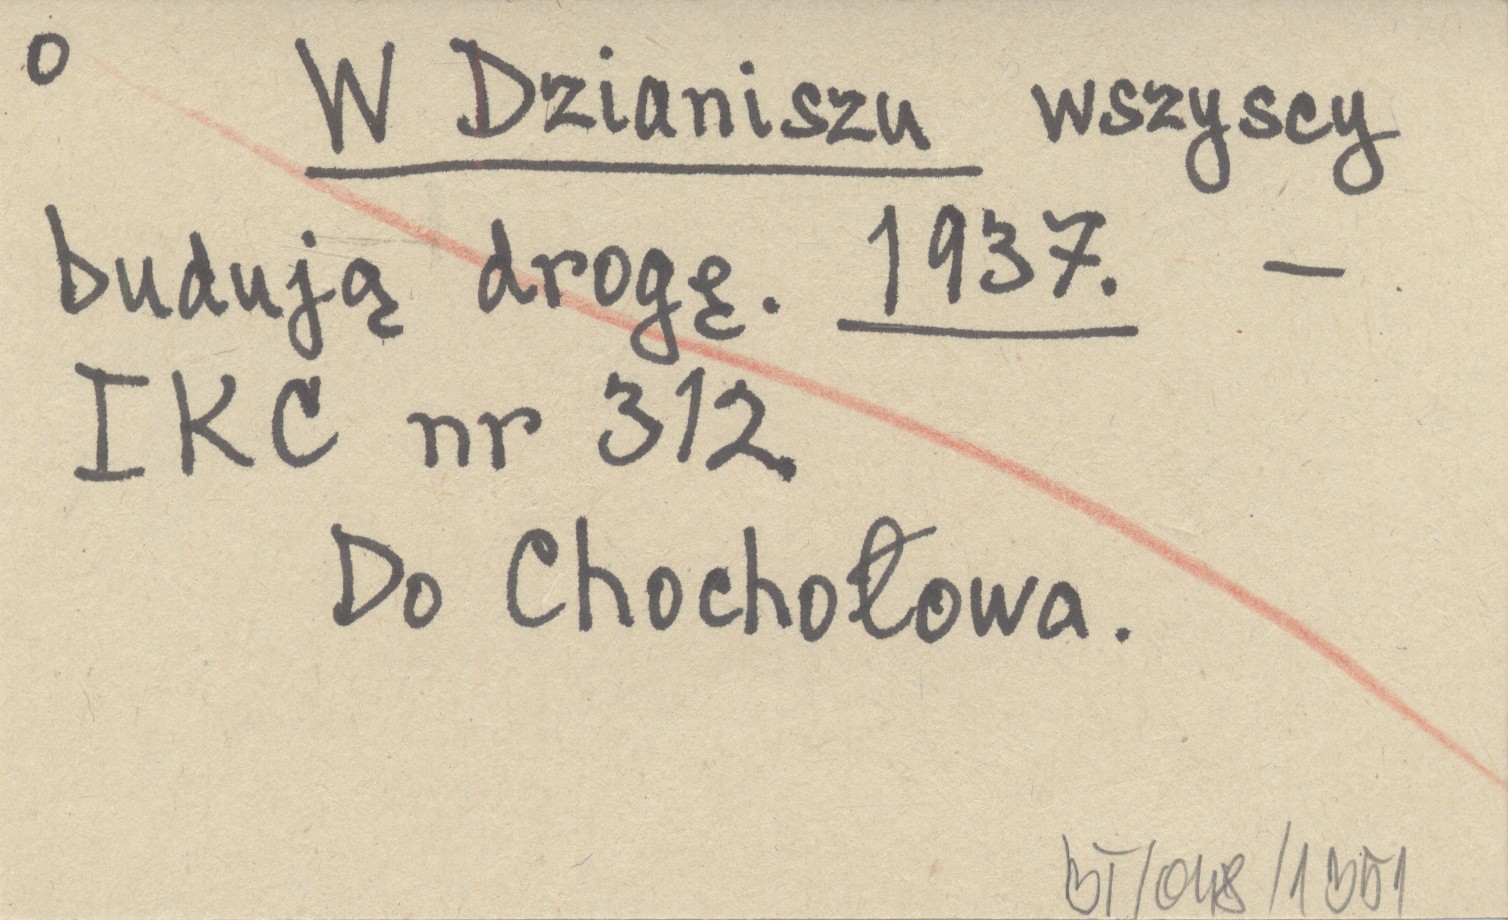 o W Dzianiszu wszyscy
budują drogę. 1937. —
IKC nr 312.
Do Chochołowa.
BT/048/1351